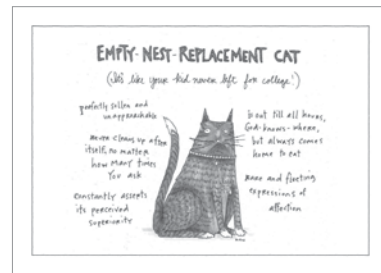 EMPTY-NEST-REPLACEMENT CAT
(It's like your kid never left for college!)
perfectly sullen and
unapproachable
never cleans up after
itself, no matter
how MANY times
You ask
constantly asserts
its perceived
superiority
is out till all hours,
God-knows-where,
but always comes
home to eat
rare and fleeting
expressions of
affection